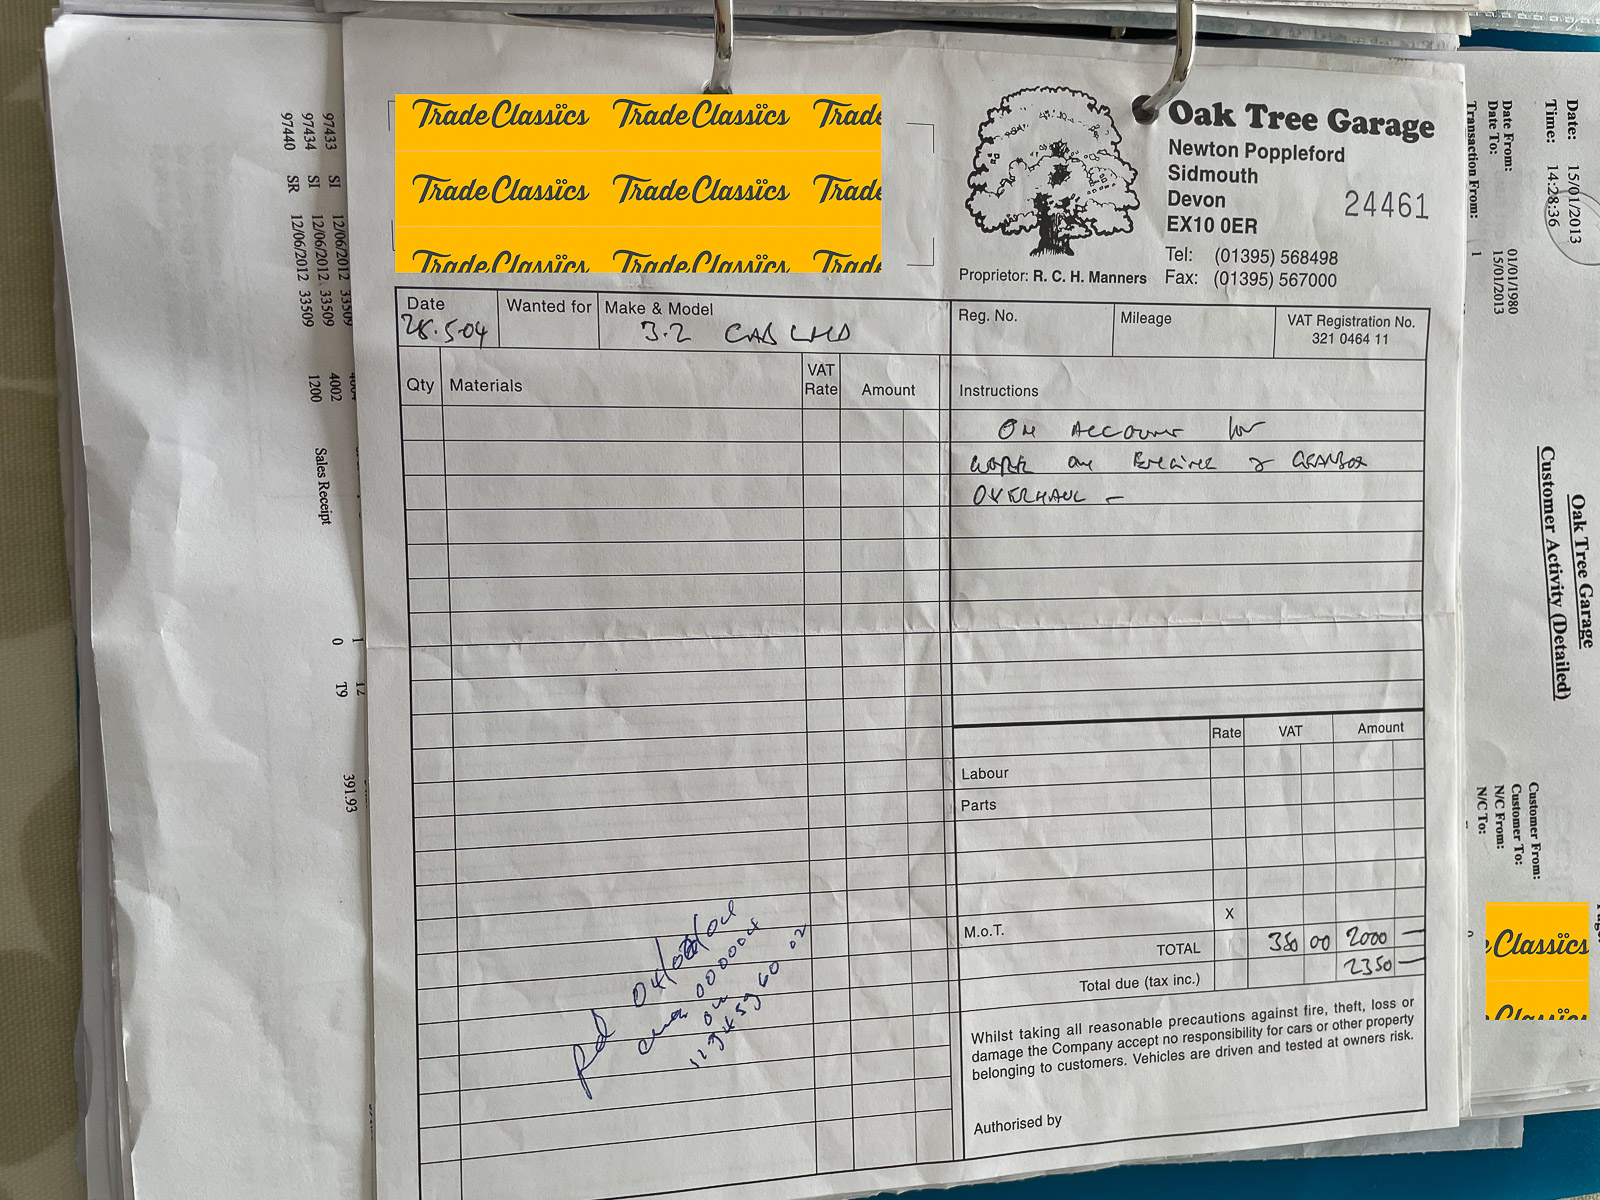 TradeClassics TradeClassics Trade
TradeClassics TradeClassics Trade
TradeClassics TradeClassics Trade
Oak Tree Garage
Newton Poppleford
Sidmouth
Devon
EX10 0ER
24461
Tel: (01395) 568498
Proprietor: R. C. H. Manners Fax: (01395) 567000
Date Wanted for Make & Model Reg. No. Mileage VAT Registration No.
28.5.04 3.2 CAB LHD 321 0464 11
Qty Materials VAT Rate Amount Instructions
ON ACCOUNT for
WORK on ENGINE & GEARBOX
OVERHAUL -
Rate VAT Amount
Labour
Parts
M.o.T. X
TOTAL 350 00 2000 -
Total due (tax inc.) 2350 -
Whilst taking all reasonable precautions against fire, theft, loss or
damage the Company accept no responsibility for cars or other property
belonging to customers. Vehicles are driven and tested at owners risk.
Authorised by
Pd
000004
97433 SI 12/06/2012 33509
97434 SI 12/06/2012 33509 4002
97440 SR 12/06/2012 33509 1200 Sales Receipt
0 T9 391.93
Date: 15/01/2013
Time: 14:28:36
Oak Tree Garage
Customer Activity (Detailed)
Date From: 01/01/1980
Date To: 15/01/2013
Transaction From: 1
Customer From:
Customer To:
N/C From:
N/C To:
Classics
Classics